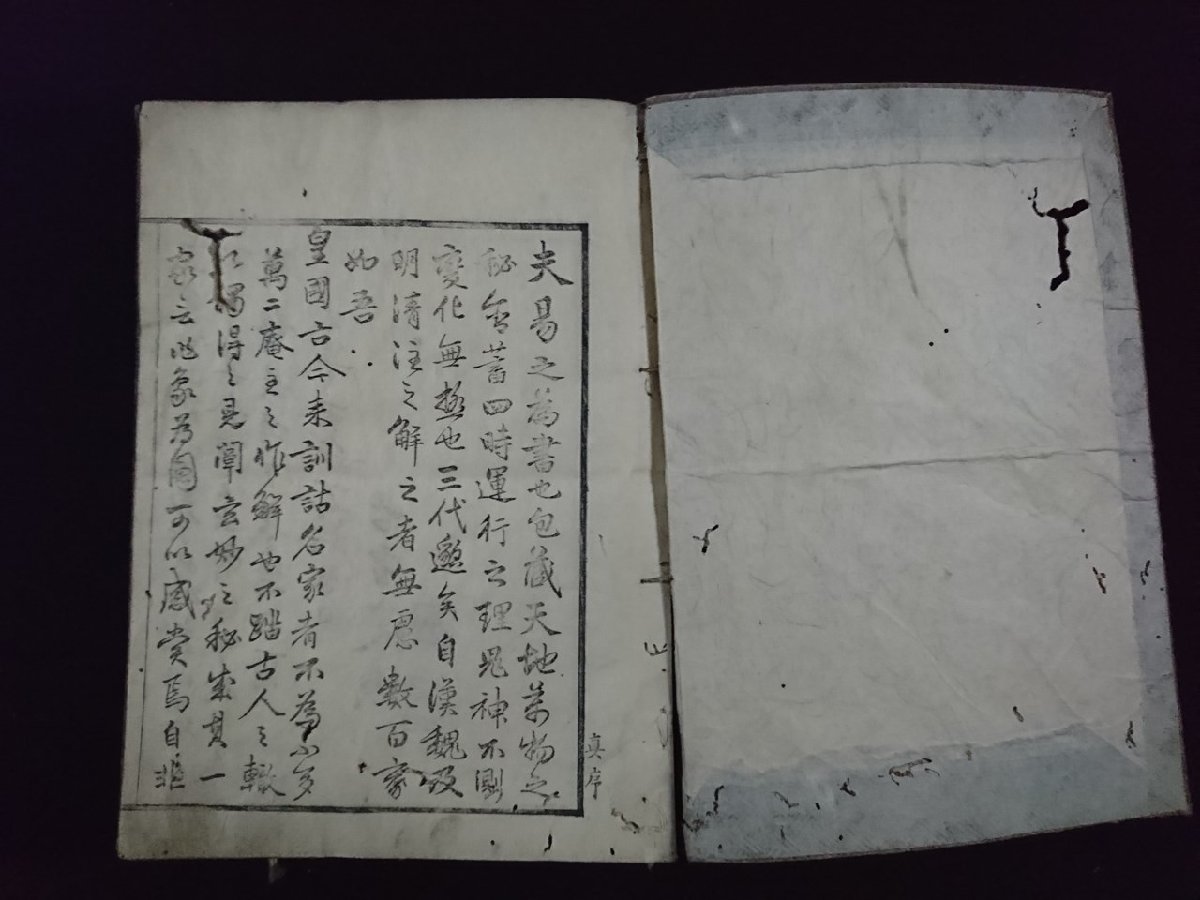 夫易之為書也包蔵天地万物之
秘含蓄四時運行之理鬼神不測
変化無極也三代邈矣自漢魏及
明清注之解之者無慮数百家
如吾
皇国古今来訓詁名家者不為不多
萬二庵主之作解也不踏古人之轍
独得之見闡玄妙之秘
家云此象為 可以感賞焉自非
真序